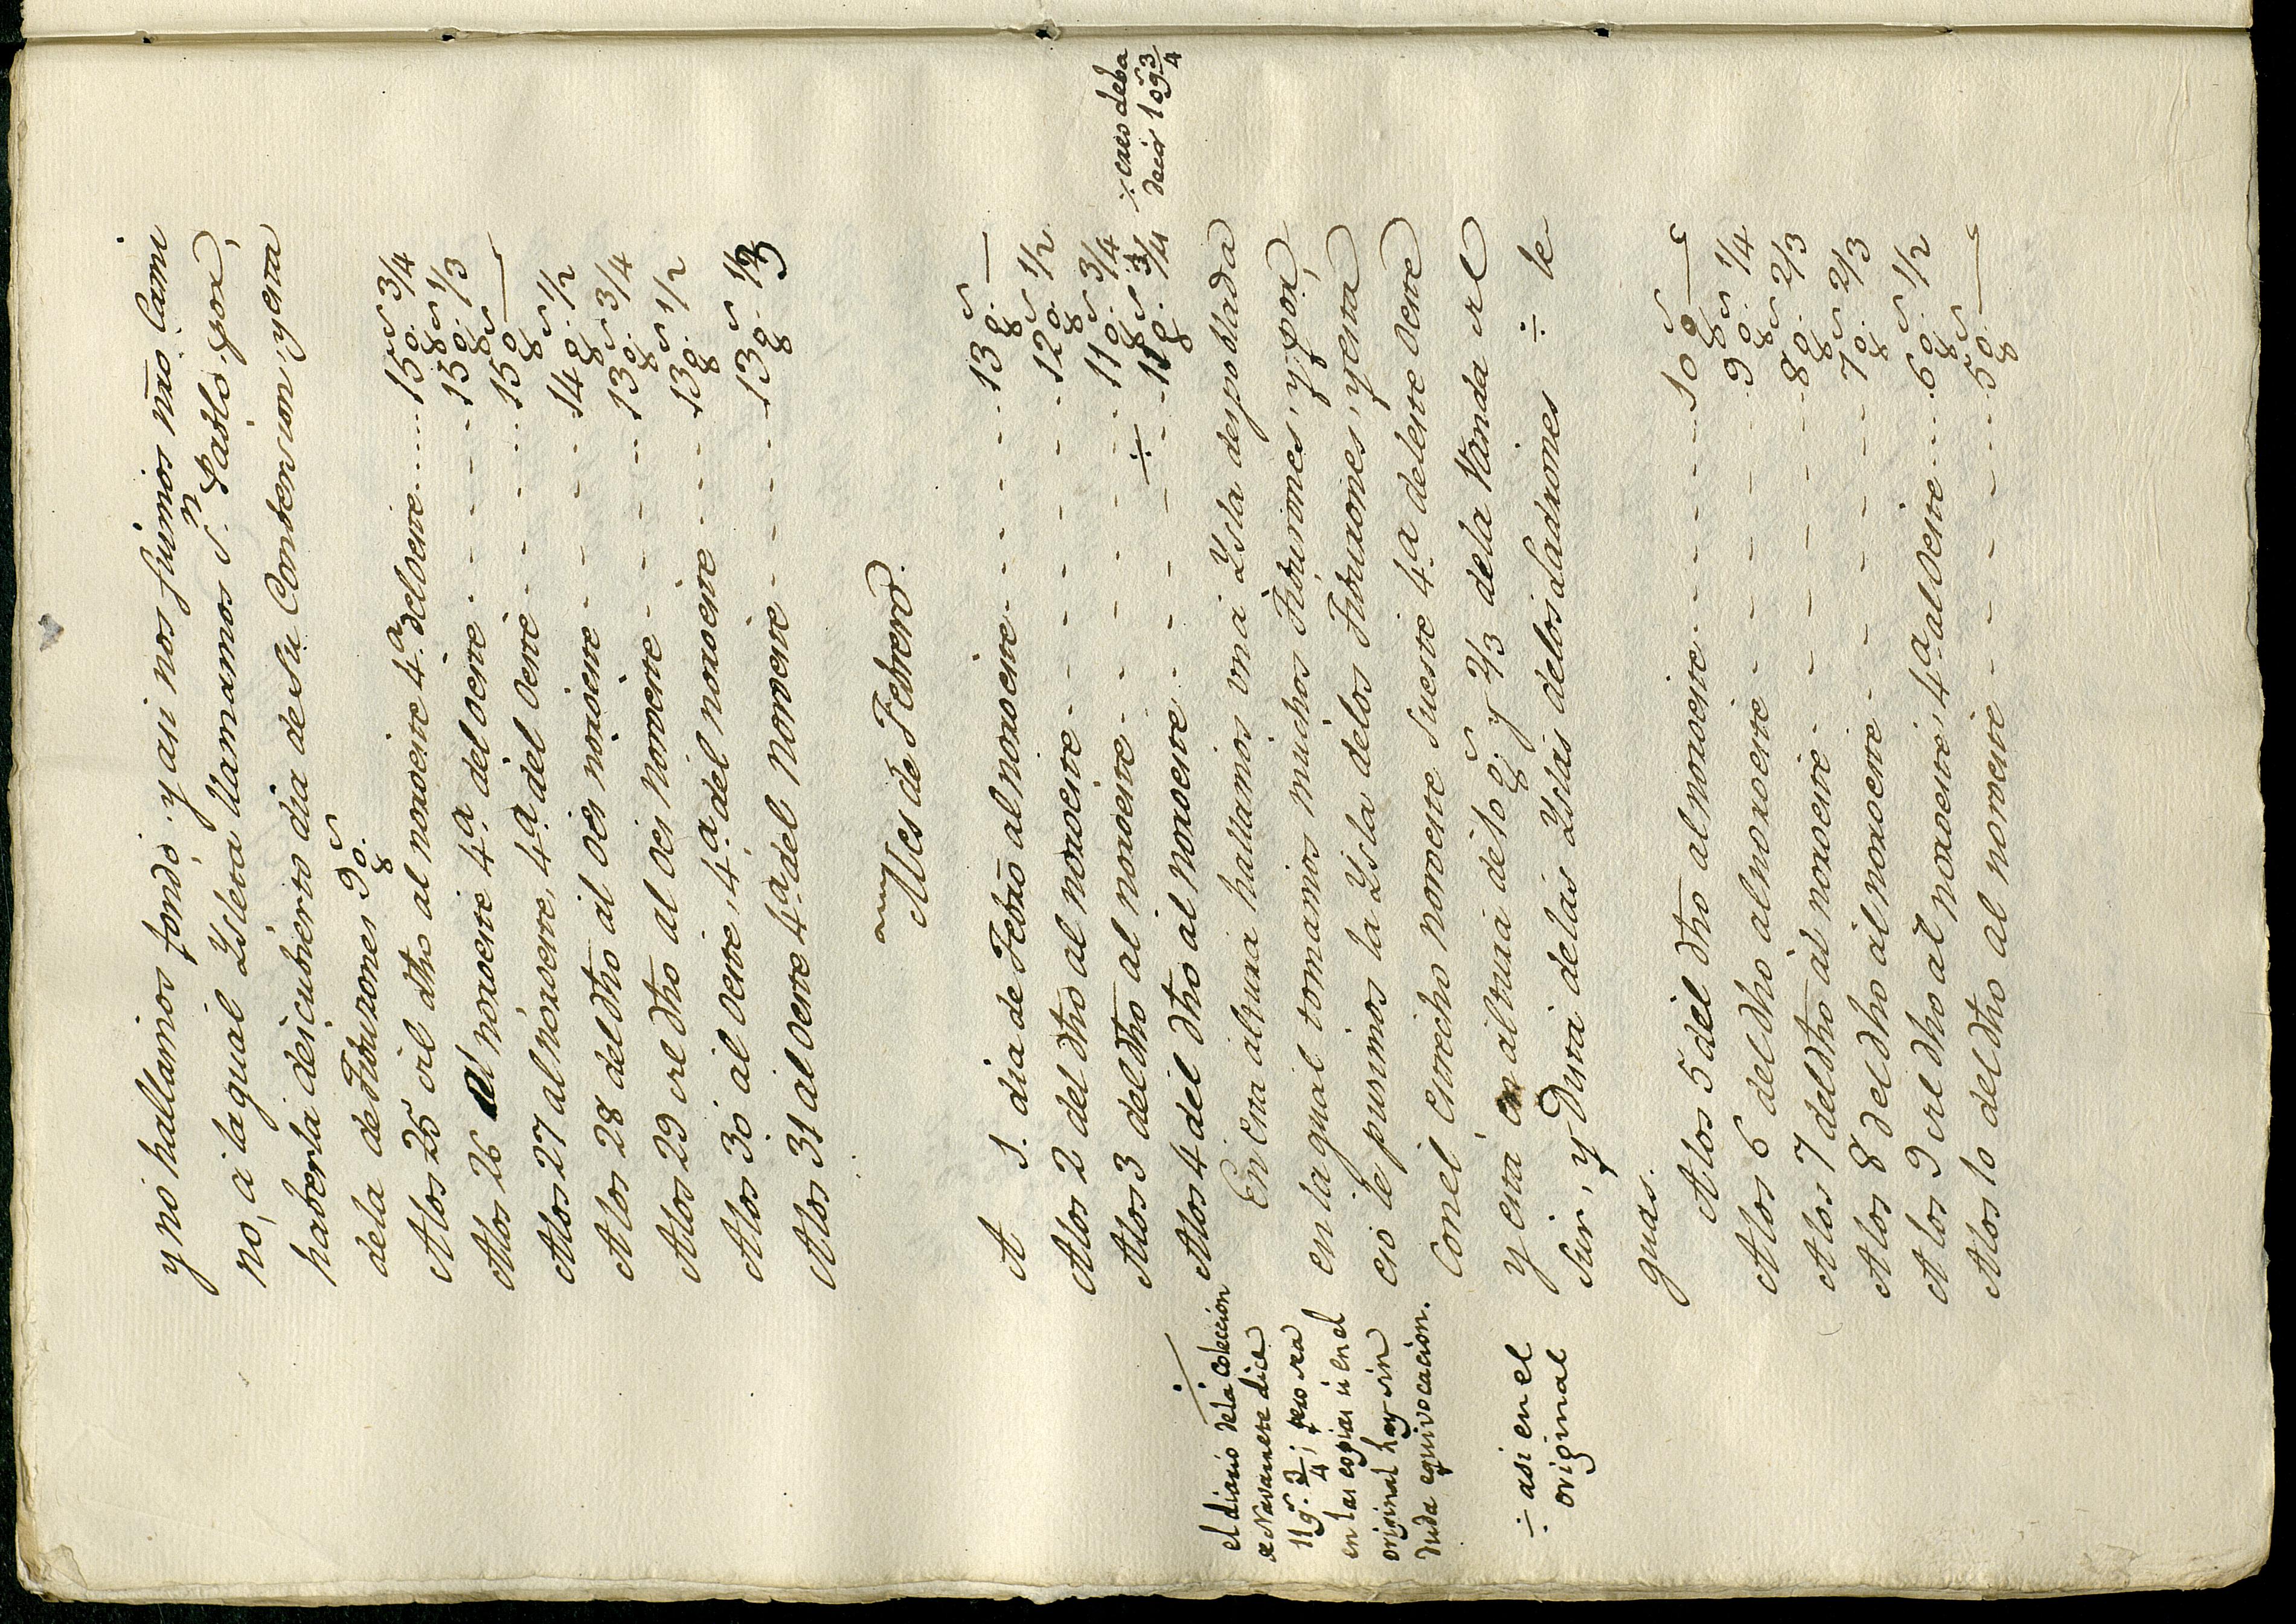 y no hallamos fondo. y asi nos fuimos nr̃o Cami
no, a la qual Ysleta llamamos Sⁿ. Pablo, por,
haberla descubierto dia de su Combersion, y esta
dela de Tiburones 9 gº.ˢ
A los 25 del dho al noroeste 4.ª del oeste...... 15 gº.ˢ 3/4
A los 26 al noroeste 4.ª del oeste - - - 15 gº.ˢ 1/3
A los 27 al noroeste, 4.ª del Oeste - - - 15 gº.ˢ —
A los 28 del dho al oes noroeste - - - 14 gº.ˢ 1/2
A los 29 del dho al oes Noroeste - - - 13 gº.ˢ 3/4
A los 30 al Oeste, 4.ª del noroeste - - - 13 gº.ˢ 1/2
A los 31 al Oeste 4.ª del Noroeste - - - 13 gº.ˢ 1/3
Mes de Febrero.
A 1. dia de Febr̃o al noroeste - - - 13 gº.ˢ —
A los 2 del dho al noroeste - - - 12 gº.ˢ 1/2
A los 3 del dho al noroeste - - - 11 gº.ˢ 3/4
A los 4 del dho al noroeste - - ÷ - 11 gº.ˢ 3/4
÷ creo deba
decir 10 gˢ 3/4
En esta altura hallamos una Ysla despoblada
en la qual tomamos muchos Tiburones, y por,
eso le pusimos la Ysla de los Tiburones, y esta
Con el, estrecho noroeste Sueste 4.ª del este Oeste
y esta en altura de 10 gˢ. y 2/3 de la Vanda del
Sur, y Dista de las Yslas de los Ladrones ÷ le
guas.
÷
el diario de la coleccion
de Navarrete dice
11 gˢ. 3/4; pero sea
en las copias ú en el
original hay sin
duda equivocacion.
÷ asi en el
original
A los 5 del dho al noroeste - - - 10 gº.ˢ —
A los 6 del dho al noroeste - - - 9 gº.ˢ 1/4
A los 7 del dho al noroeste - - - 8 gº.ˢ 2/3
A los 8 del dho al noroeste - - - 7 gº.ˢ 2/3
A los 9 del dho al noroeste, 4.ª al Oeste .... 6 gº.ˢ 1/2
A los 10 del dho al noroeste - - - 5 gº.ˢ —